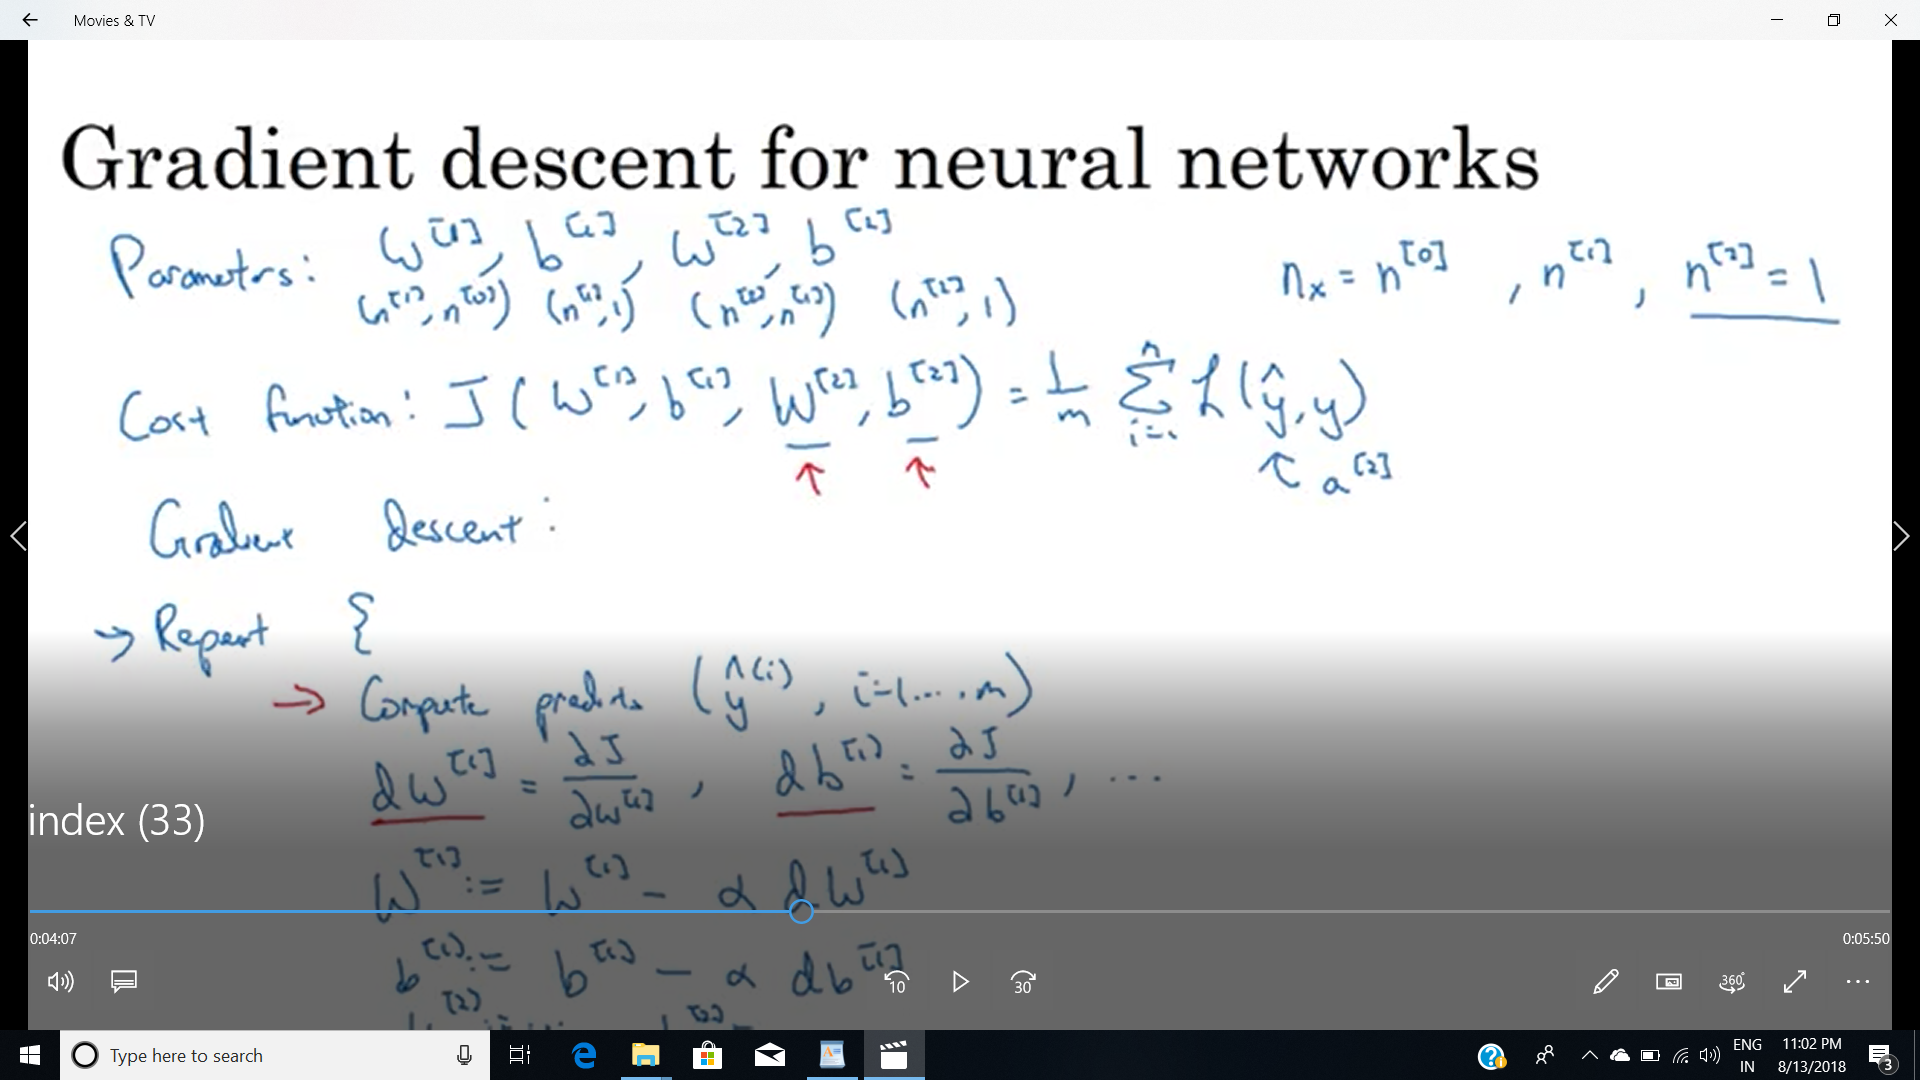 Movies & TV
Gradient descent for neural networks
Parameters: W^[1], b^[1], W^[2], b^[2]
n_x = n^[0], n^[1], n^[2] = 1
(n^[1], n^[0]) (n^[1], 1) (n^[2], n^[1]) (n^[2], 1)
Cost function: J(W^[1], b^[1], W^[2], b^[2]) = 1/m ∑_{i=1}^n L(ŷ, y)
↑ ↑ ↑ a^[2]
Gradient descent:
→ Repeat {
→ Compute predicts (ŷ^(i), i=1...,m)
dW^[1] = ∂J/∂W^[1], db^[1] = ∂J/∂b^[1], ...
index (33)
W^[1] := W^[1] - α dW^[1]
0:04:07
0:05:50
b^[1] := b^[1] - α db^[1]
10
30
360°
Type here to search
ENG
IN
11:02 PM
8/13/2018
3